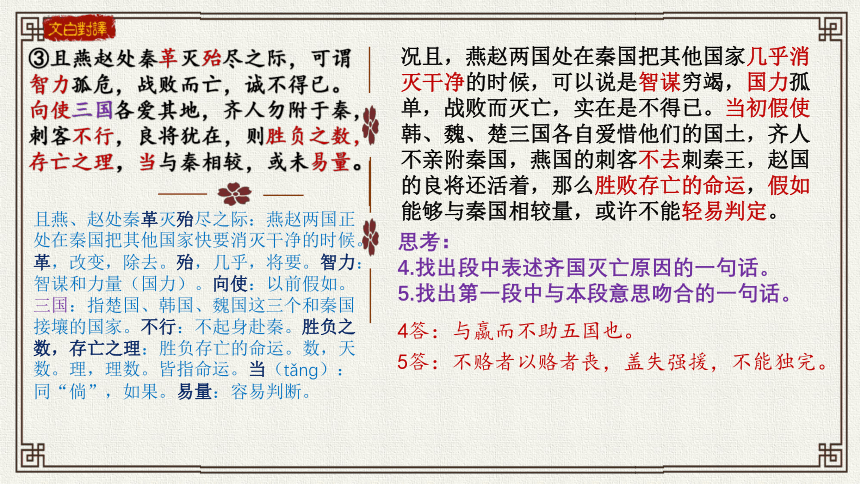 文白對譯
③且燕赵处秦革灭殆尽之际，可谓
智力孤危，战败而亡，诚不得已。
向使三国各爱其地，齐人勿附于秦，
刺客不行，良将犹在，则胜负之数，
存亡之理，当与秦相较，或未易量。
且燕、赵处秦革灭殆尽之际：燕赵两国正
处在秦国把其他国家快要消灭干净的时候。
革，改变，除去。殆，几乎，将要。智力：
智谋和力量（国力）。向使：以前假如。
三国：指楚国、韩国、魏国这三个和秦国
接壤的国家。不行：不起身赴秦。胜负之
数，存亡之理：胜负存亡的命运。数，天
数。理，理数。皆指命运。当（tǎng）：
同“倘”，如果。易量：容易判断。
况且，燕赵两国处在秦国把其他国家几乎消
灭干净的时候，可以说是智谋穷竭，国力孤
单，战败而灭亡，实在是不得已。当初假使
韩、魏、楚三国各自爱惜他们的国土，齐人
不亲附秦国，燕国的刺客不去刺秦王，赵国
的良将还活着，那么胜败存亡的命运，假如
能够与秦国相较量，或许不能轻易判定。
思考：
4.找出段中表述齐国灭亡原因的一句话。
5.找出第一段中与本段意思吻合的一句话。
4答：与嬴而不助五国也。
5答：不赂者以赂者丧，盖失强援，不能独完。